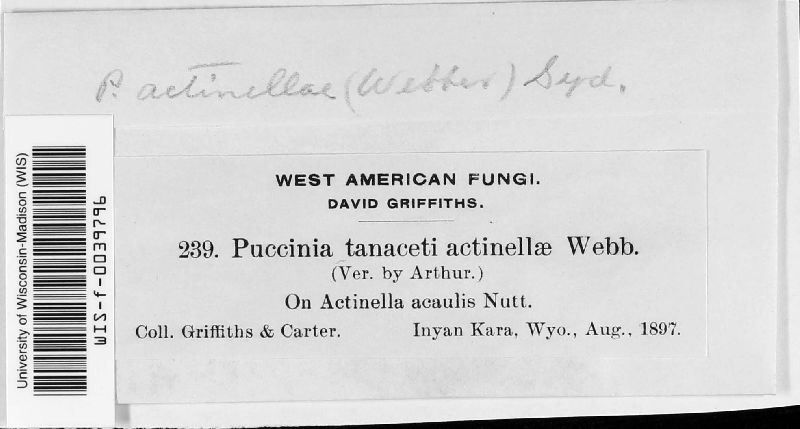 P. actinellae (Webber) Syd.
WEST AMERICAN FUNGI.
DAVID GRIFFITHS.
239. Puccinia tanaceti actinellæ Webb.
(Ver. by Arthur.)
On Actinella acaulis Nutt.
Coll. Griffiths & Carter. Inyan Kara, Wyo., Aug., 1897.
University of Wisconsin-Madison (WIS)
WIS-f-0039796